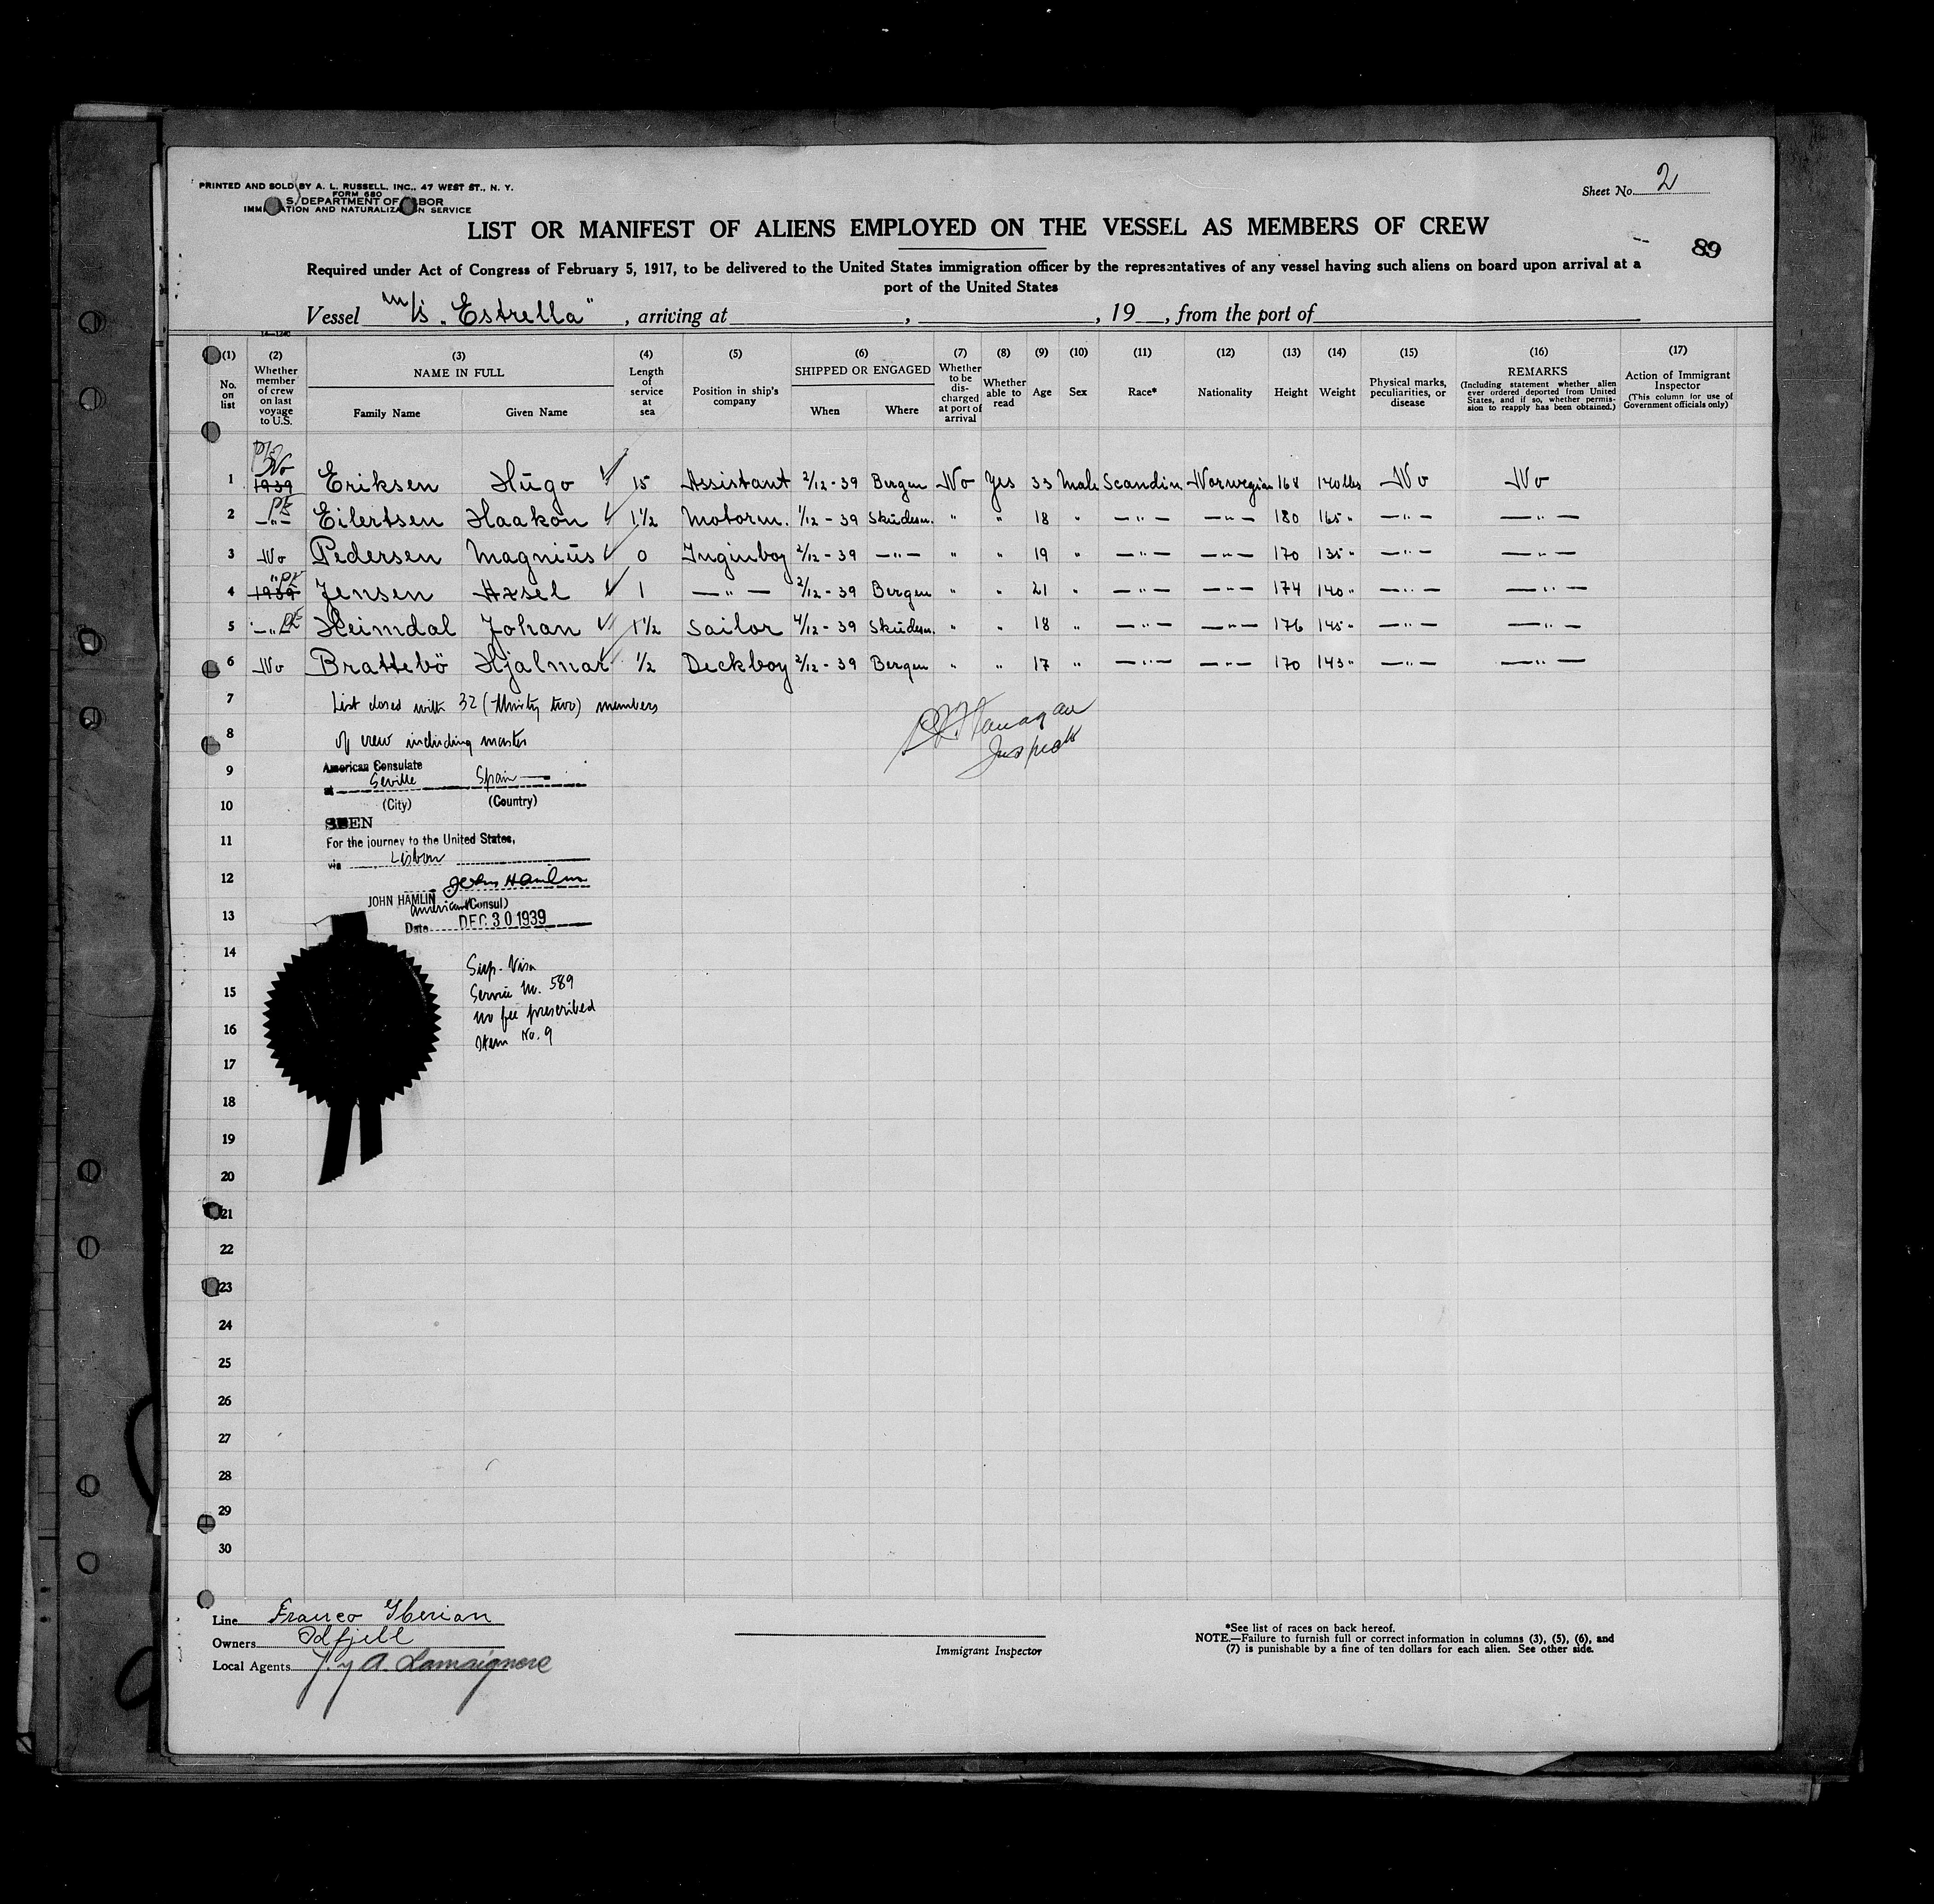 PRINTED AND SOLD BY A. L. RUSSELL, INC., 47 WEST ST., N. Y.
FORM 680
S. DEPARTMENT OF LABOR
IMMIGRATION AND NATURALIZATION SERVICE
Sheet No. 2
LIST OR MANIFEST OF ALIENS EMPLOYED ON THE VESSEL AS MEMBERS OF CREW
89
Required under Act of Congress of February 5, 1917, to be delivered to the United States immigration officer by the representatives of any vessel having such aliens on board upon arrival at a
port of the United States
Vessel m/s „Estrella" , arriving at , , 19 , from the port of
(1) (2) (3) (4) (5) (6) (7) (8) (9) (10) (11) (12) (13) (14) (15) (16) (17)
No. on list Whether member of crew on last voyage to U.S. NAME IN FULL Family Name Given Name Length of service at sea Position in ship's company SHIPPED OR ENGAGED When Where Whether to be discharged at port of arrival Whether able to read Age Sex Race* Nationality Height Weight Physical marks, peculiarities, or disease REMARKS (Including statement whether alien ever ordered deported from United States, and if so, whether permission to reapply has been obtained.) Action of Immigrant Inspector (This column for use of Government officials only)
No
1 1939 Eriksen Hugo 15 Assistant 2/12 - 39 Bergen No Yes 33 Male Scandin Norwegian 168 140 lbs No No
2 —"— Eilertsen Haakon 1½ Motorm. 1/12 - 39 Skudesn. " " 18 " —"— —"— 180 165 " —"— —"—
3 No Pedersen Magnus 0 Inginboy 2/12 - 39 —"— " " 19 " —"— —"— 170 135 " —"— —"—
4 1939 Jensen Axsel 1 —"— 2/12 - 39 Bergen " " 21 " —"— —"— 174 140 " —"— —"—
5 —"— Heimdal Johan 1½ Sailor 4/12 - 39 Skudesn. " " 18 " —"— —"— 176 145 " —"— —"—
6 No Brattebö Hjalmar ½ Deckboy 2/12 - 39 Bergen " " 17 " —"— —"— 170 143 " —"— —"—
7 List closed with 32 (thirty two) members
8 of crew including master
Flanagan
Inspector
9 American Consulate
at Seville Spain
10 (City) (Country)
SEEN
11 For the journey to the United States,
via Lisbon
12 John Hamlin
JOHN HAMLIN
American (Consul)
13 Date DEC 30 1939
14 Sup. Visa
15 Service No. 589
no fee prescribed
16 Item No. 9
17
18
19
20
21
22
23
24
25
26
27
28
29
30
Line Franco Iberian
Owners Odfjell
Local Agents J. y A. Lamaignere
Immigrant Inspector
*See list of races on back hereof.
NOTE.—Failure to furnish full or correct information in columns (3), (5), (6), and
(7) is punishable by a fine of ten dollars for each alien. See other side.